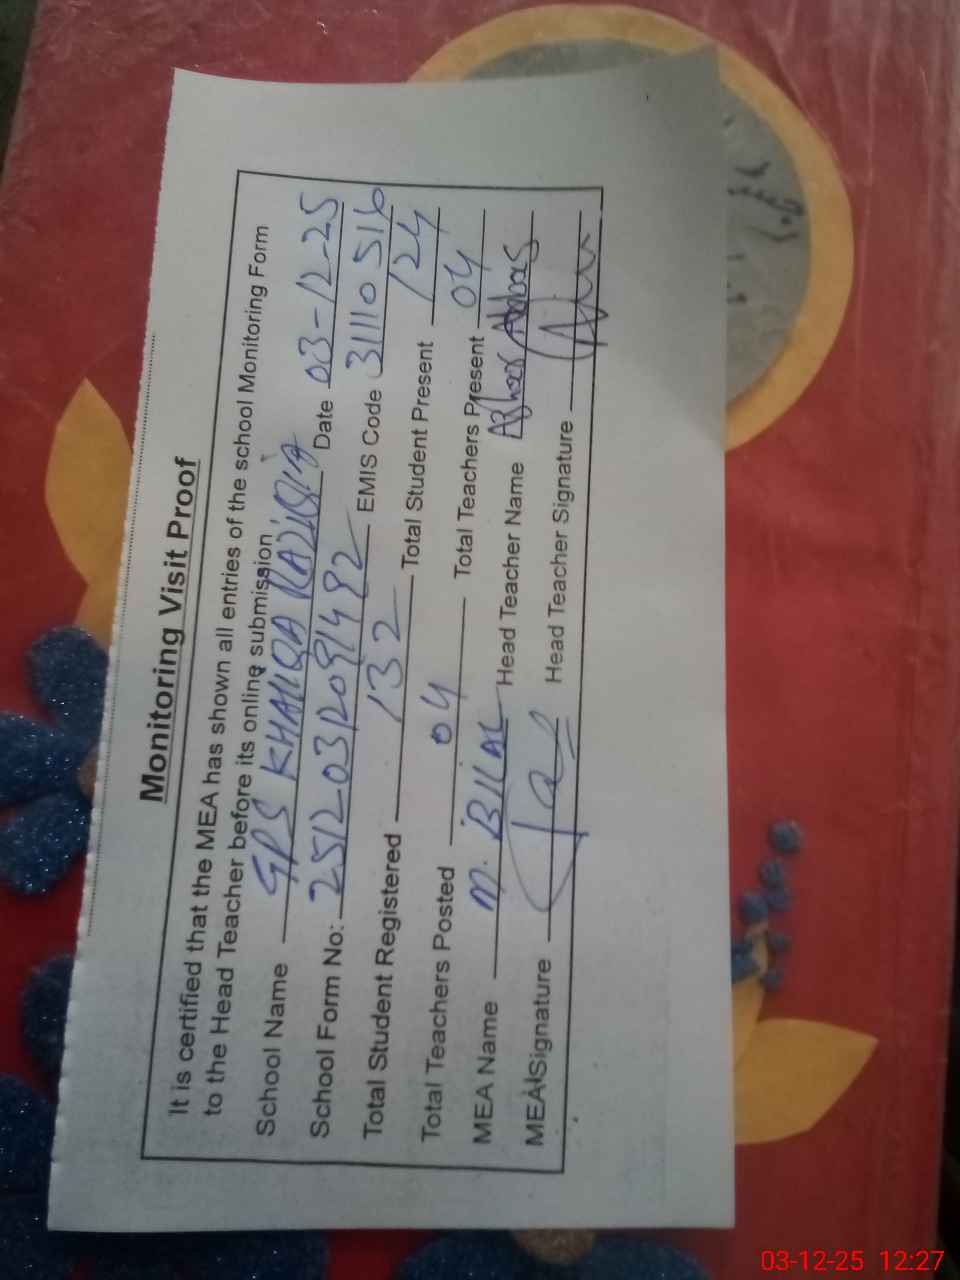 Monitoring Visit Proof
It is certified that the MEA has shown all entries of the school Monitoring Form
to the Head Teacher before its online submission
School Name GPS KHALIQA Date 03-12-25
School Form No: 25120312091492 EMIS Code 31110516
Total Student Registered 132 Total Student Present 124
Total Teachers Posted 04 Total Teachers Present 04
MEA Name M. BILAL Head Teacher Name Azhar Abbas
MEA Signature Head Teacher Signature
03-12-25 12:27